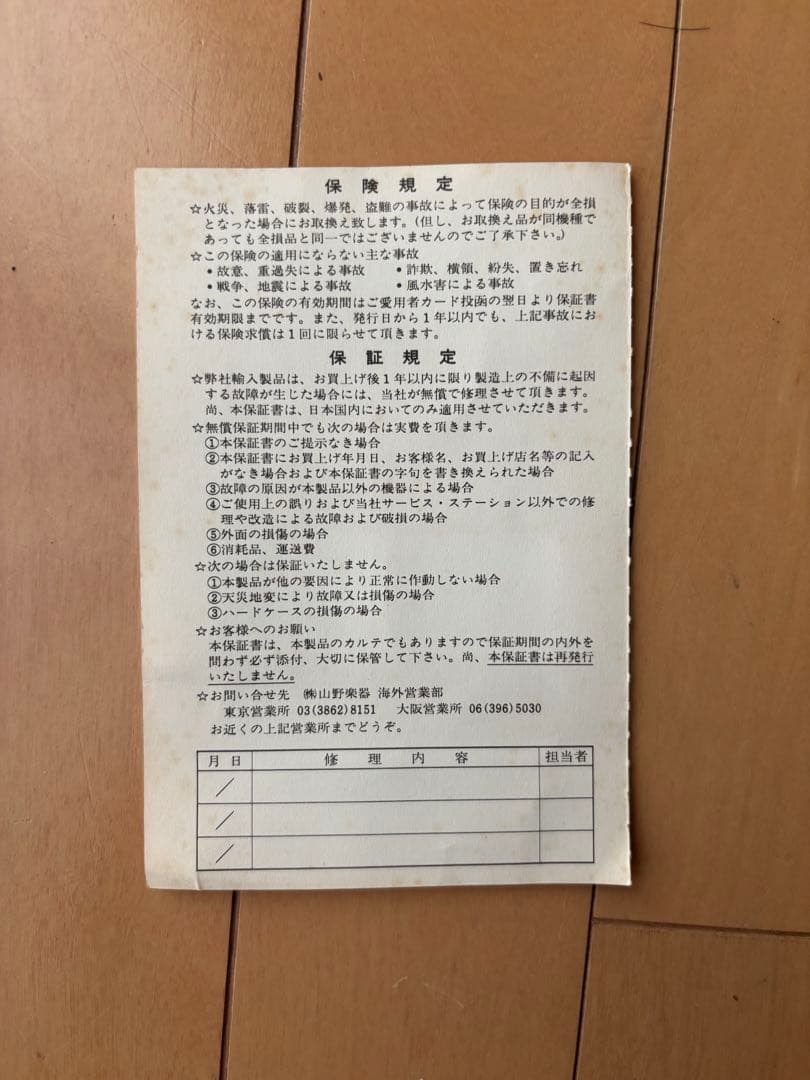 保険規定
☆火災、落雷、破裂、爆発、盗難の事故によって保険の目的が全損
となった場合にお取換え致します。(但し、お取換え品が同機種で
あっても全損品と同一ではございませんのでご了承下さい。)
☆この保険の適用にならない主な事故
・故意、重過失による事故 ・詐欺、横領、紛失、置き忘れ
・戦争、地震による事故 ・風水害による事故
なお、この保険の有効期間はご愛用者カード投函の翌日より保証書
有効期限までです。また、発行日から1年以内でも、上記事故にお
ける保険求償は1回に限らせて頂きます。
保証規定
☆弊社輸入製品は、お買上げ後1年以内に限り製造上の不備に起因
する故障が生じた場合には、当社が無償で修理させて頂きます。
尚、本保証書は、日本国内においてのみ適用させていただきます。
☆無償保証期間中でも次の場合は実費を頂きます。
①本保証書のご提示なき場合
②本保証書にお買上げ年月日、お客様名、お買上げ店名等の記入
がなき場合および本保証書の字句を書き換えられた場合
③故障の原因が本製品以外の機器による場合
④ご使用上の誤りおよび当社サービス・ステーション以外での修
理や改造による故障および破損の場合
⑤外面の損傷の場合
⑥消耗品、運送費
☆次の場合は保証いたしません。
①本製品が他の要因により正常に作動しない場合
②天災地変により故障又は損傷の場合
③ハードケースの損傷の場合
☆お客様へのお願い
本保証書は、本製品のカルテでもありますので保証期間の内外を
問わず必ず添付、大切に保管して下さい。尚、本保証書は再発行
いたしません。
☆お問い合せ先 ㈱山野楽器 海外営業部
東京営業所 03(3862)8151 大阪営業所 06(396)5030
お近くの上記営業所までどうぞ。
月日 修理内容 担当者
／
／
／